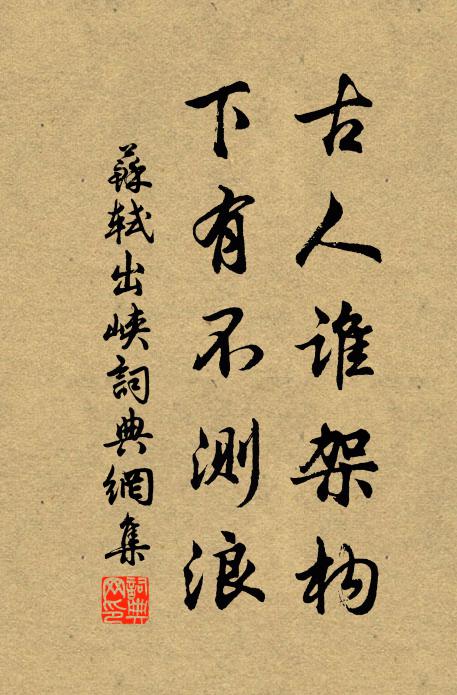 古人谁架构
下有不测浪
蘇軾出峽詞典網集
詞典网印